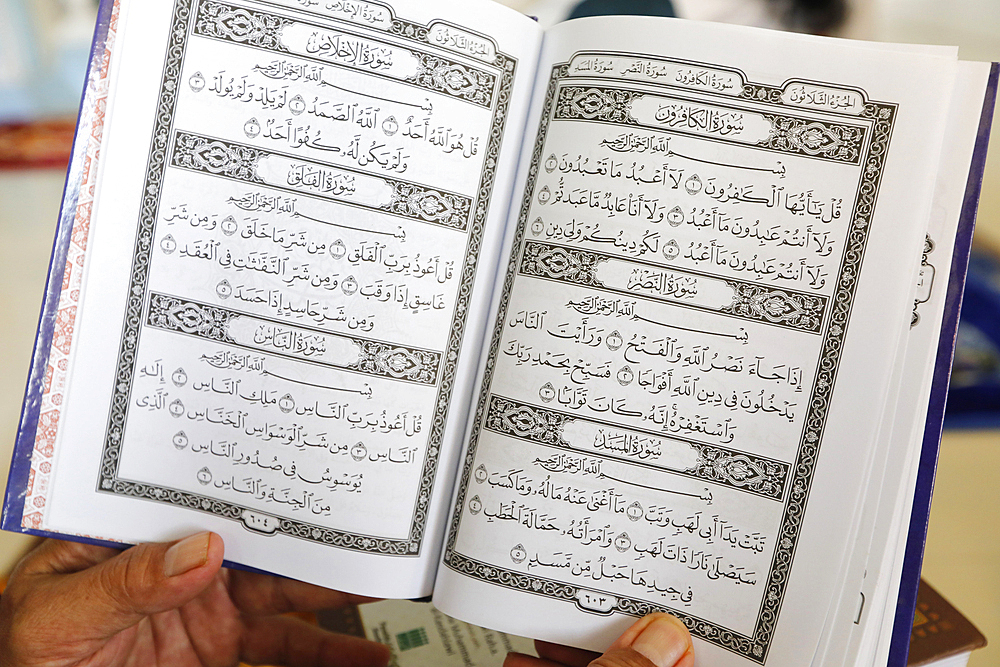 سُورَةُ الْكَافِرُونَ سُورَةُ النَّصْرِ سُورَةُ الْمَسَدِ
الجُزْءُ الثَّلَاثُونَ
سُورَةُ الْكَافِرُونَ
بِسْمِ اللَّهِ الرَّحْمَٰنِ الرَّحِيمِ
قُلْ يَٰٓأَيُّهَا ٱلْكَٰفِرُونَ ١ لَآ أَعْبُدُ مَا تَعْبُدُونَ ٢
وَلَآ أَنتُمْ عَٰبِدُونَ مَآ أَعْبُدُ ٣ وَلَآ أَنَا۠ عَابِدٌ مَّا عَبَدتُّمْ ٤
وَلَآ أَنتُمْ عَٰبِدُونَ مَآ أَعْبُدُ ٥ لَكُمْ دِينُكُمْ وَلِىَ دِينِ ٦
سُورَةُ النَّصْرِ
بِسْمِ اللَّهِ الرَّحْمَٰنِ الرَّحِيمِ
إِذَا جَآءَ نَصْرُ ٱللَّهِ وَٱلْفَتْحُ ١ وَرَأَيْتَ ٱلنَّاسَ
يَدْخُلُونَ فِى دِينِ ٱللَّهِ أَفْوَاجًا ٢ فَسَبِّحْ بِحَمْدِ رَبِّكَ
وَٱسْتَغْفِرْهُ إِنَّهُۥ كَانَ تَوَّابًۢا ٣
سُورَةُ الْمَسَدِ
بِسْمِ اللَّهِ الرَّحْمَٰنِ الرَّحِيمِ
تَبَّتْ يَدَآ أَبِى لَهَبٍ وَتَبَّ ١ مَآ أَغْنَىٰ عَنْهُ مَالُهُۥ وَمَا كَسَبَ ٢
سَيَصْلَىٰ نَارًا ذَاتَ لَهَبٍ ٣ وَٱمْرَأَتُهُۥ حَمَّالَةَ ٱلْحَطَبِ ٤
فِى جِيدِهَا حَبْلٌ مِّن مَّسَدٍۭ ٥
٦٠٣
سُورَةُ الْإِخْلَاصِ
الجُزْءُ الثَّلَاثُونَ
سُورَةُ الْإِخْلَاصِ
بِسْمِ اللَّهِ الرَّحْمَٰنِ الرَّحِيمِ
قُلْ هُوَ ٱللَّهُ أَحَدٌ ١ ٱللَّهُ ٱلصَّمَدُ ٢ لَمْ يَلِدْ وَلَمْ يُولَدْ ٣
وَلَمْ يَكُن لَّهُۥ كُفُوًا أَحَدٌۢ ٤
سُورَةُ الْفَلَقِ
بِسْمِ اللَّهِ الرَّحْمَٰنِ الرَّحِيمِ
قُلْ أَعُوذُ بِرَبِّ ٱلْفَلَقِ ١ مِن شَرِّ مَا خَلَقَ ٢ وَمِن شَرِّ
غَاسِقٍ إِذَا وَقَبَ ٣ وَمِن شَرِّ ٱلنَّفَّٰثَٰتِ فِى ٱلْعُقَدِ ٤
وَمِن شَرِّ حَاسِدٍ إِذَا حَسَدَ ٥
سُورَةُ النَّاسِ
بِسْمِ اللَّهِ الرَّحْمَٰنِ الرَّحِيمِ
قُلْ أَعُوذُ بِرَبِّ ٱلنَّاسِ ١ مَلِكِ ٱلنَّاسِ ٢ إِلَٰهِ
ٱلنَّاسِ ٣ مِن شَرِّ ٱلْوَسْوَاسِ ٱلْخَنَّاسِ ٤ ٱلَّذِى
يُوَسْوِسُ فِى صُدُورِ ٱلنَّاسِ ٥
مِنَ ٱلْجِنَّةِ وَٱلنَّاسِ ٦
٦٠٤